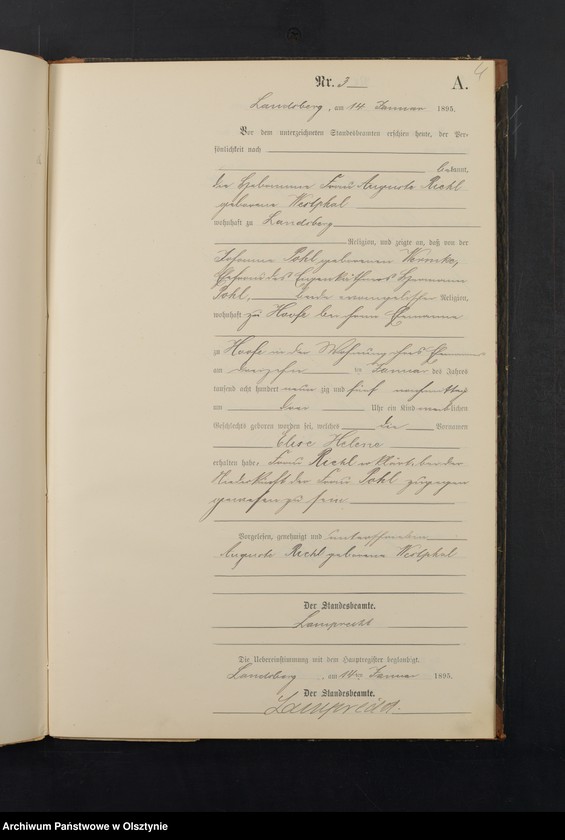 4
Nr. 3
A.
Landsberg, am 14 Januar 1895.
Vor dem unterzeichneten Standesbeamten erschien heute, der Per-
sönlichkeit nach
bekannt,
die Hebamme Frau Auguste Riehl
geborene Westphal
wohnhaft zu Landsberg
Religion, und zeigte an, daß von der
Johanne Pohl geborenen
Ehefrau des Eigenkäthners Hermann
Pohl, beide evangelischer Religion,
wohnhaft zu Hoofe bei ihrem Ehemanne
zu Hoofe in der Wohnung ihres
am dreizehn ten Januar des Jahres
tausend acht hundert neun zig und fünf nachmittags
um drei Uhr ein Kind weiblichen
Geschlechts geboren worden sei, welches die Vornamen
Elise Helene
erhalten habe. Frau Riehl erklärt, bei der
Niederkunft der Frau Pohl zugegen
gewesen zu sein
Vorgelesen, genehmigt und unterschrieben
Auguste Riehl geborene Westphal
Der Standesbeamte.
Lamprecht
Die Uebereinstimmung mit dem Hauptregister beglaubigt.
Landsberg, am 14ten Januar 1895.
Der Standesbeamte.
Lamprecht.
Archiwum Państwowe w Olsztynie